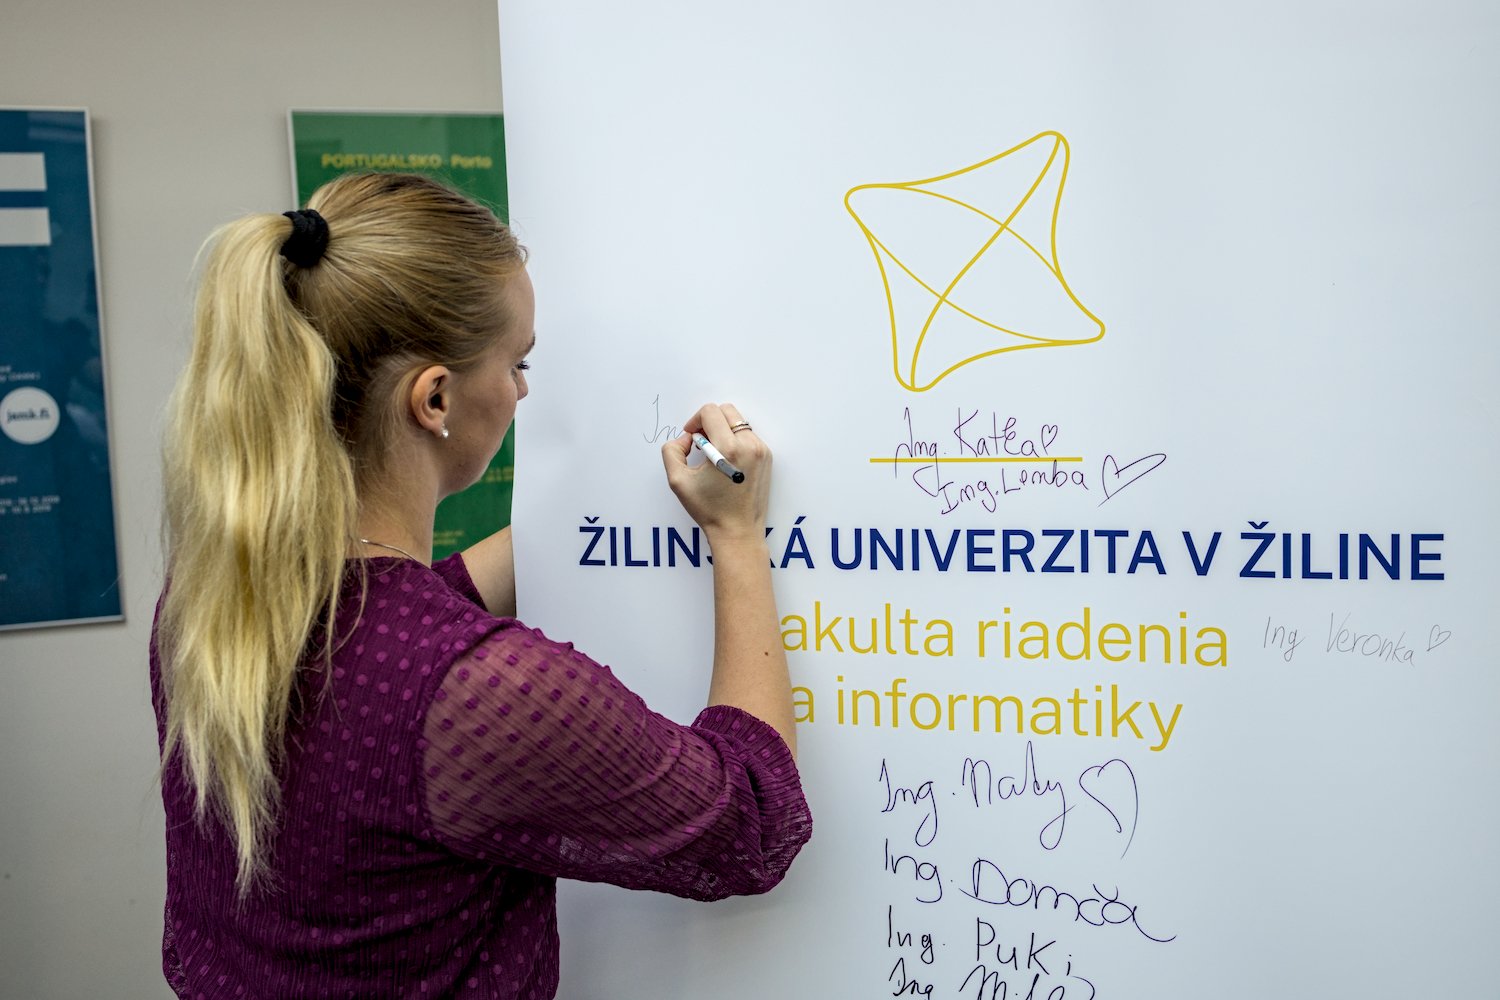 PORTUGALSKO Porto
jamk.fi
In
Ing. Katka
Ing. Lemba
ŽILINSKÁ UNIVERZITA V ŽILINE
akulta riadenia
a informatiky
Ing Veronka
Ing. Naty
Ing. Domča
Ing. Puki
Ing